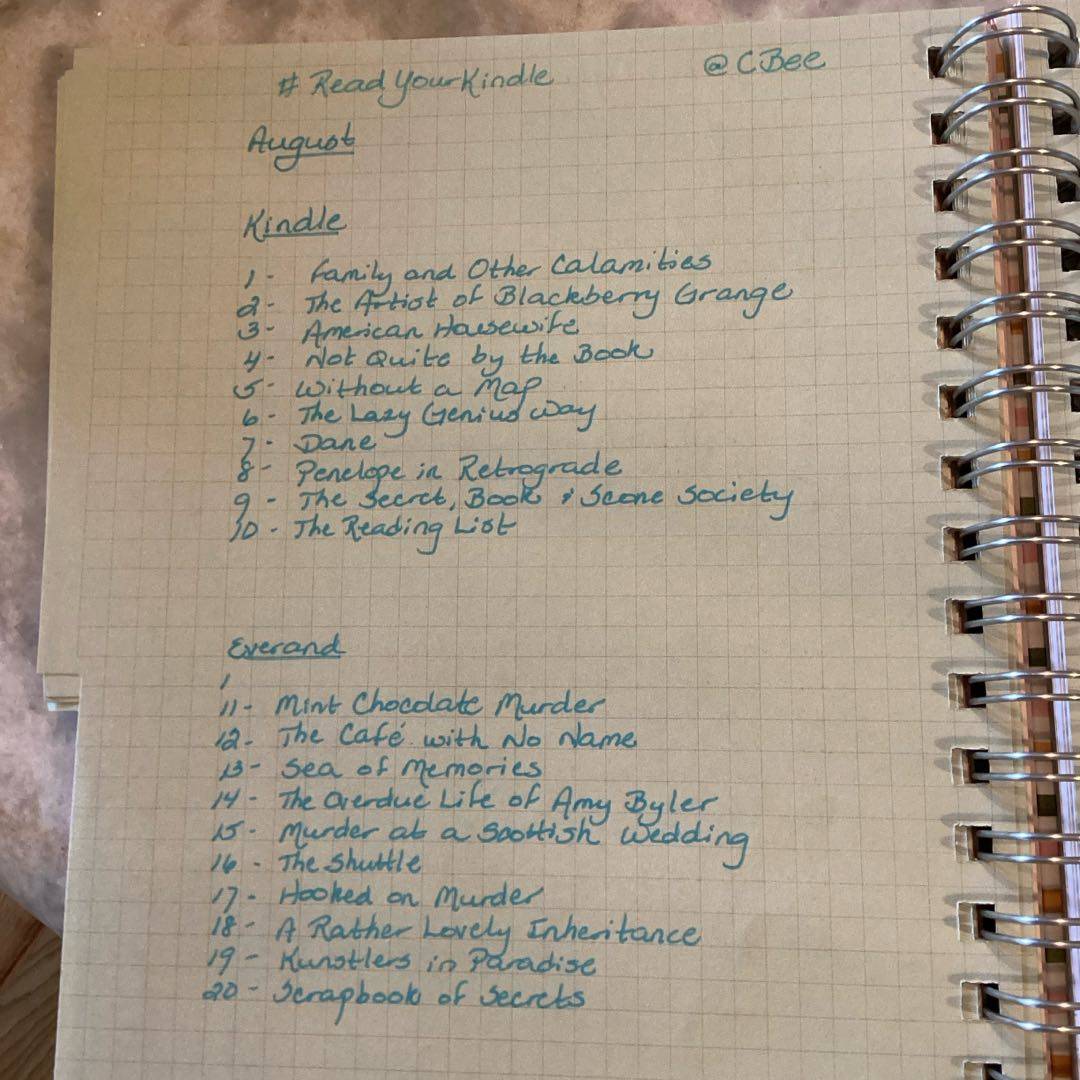 # ReadYourKindle @CBee
August
Kindle
1 - Family and Other Calamities
2 - The Artist of Blackberry Grange
3 - American Housewife
4 - Not Quite by the Book
5 - Without a Map
6 - The Lazy Genius Way
7 - Dane
8 - Penelope in Retrograde
9 - The Secret, Book & Scone Society
10 - The Reading List
Everand
1
11 - Mint Chocolate Murder
12 - The Café with No Name
13 - Sea of Memories
14 - The Overdue Life of Amy Byler
15 - Murder at a Scottish Wedding
16 - The Shuttle
17 - Hooked on Murder
18 - A Rather Lovely Inheritance
19 - Kunstlers in Paradise
20 - Scrapbook of Secrets